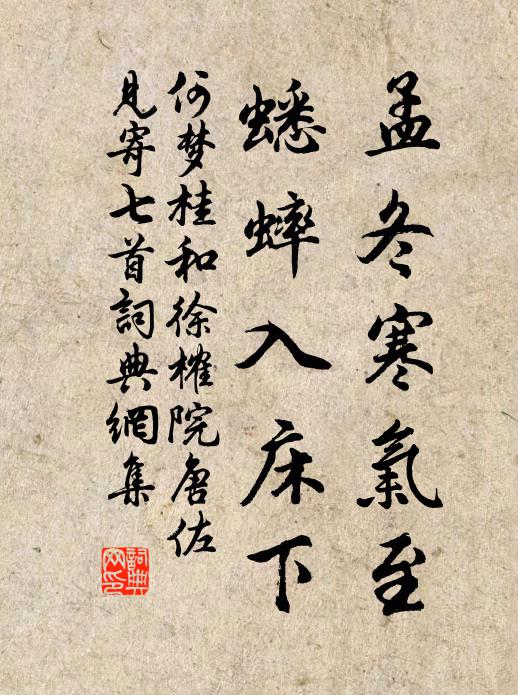 孟冬寒氣至
蟋蟀入床下
何梦桂和徐榷院唐佐
見寄七首詞典網集
詞典网印